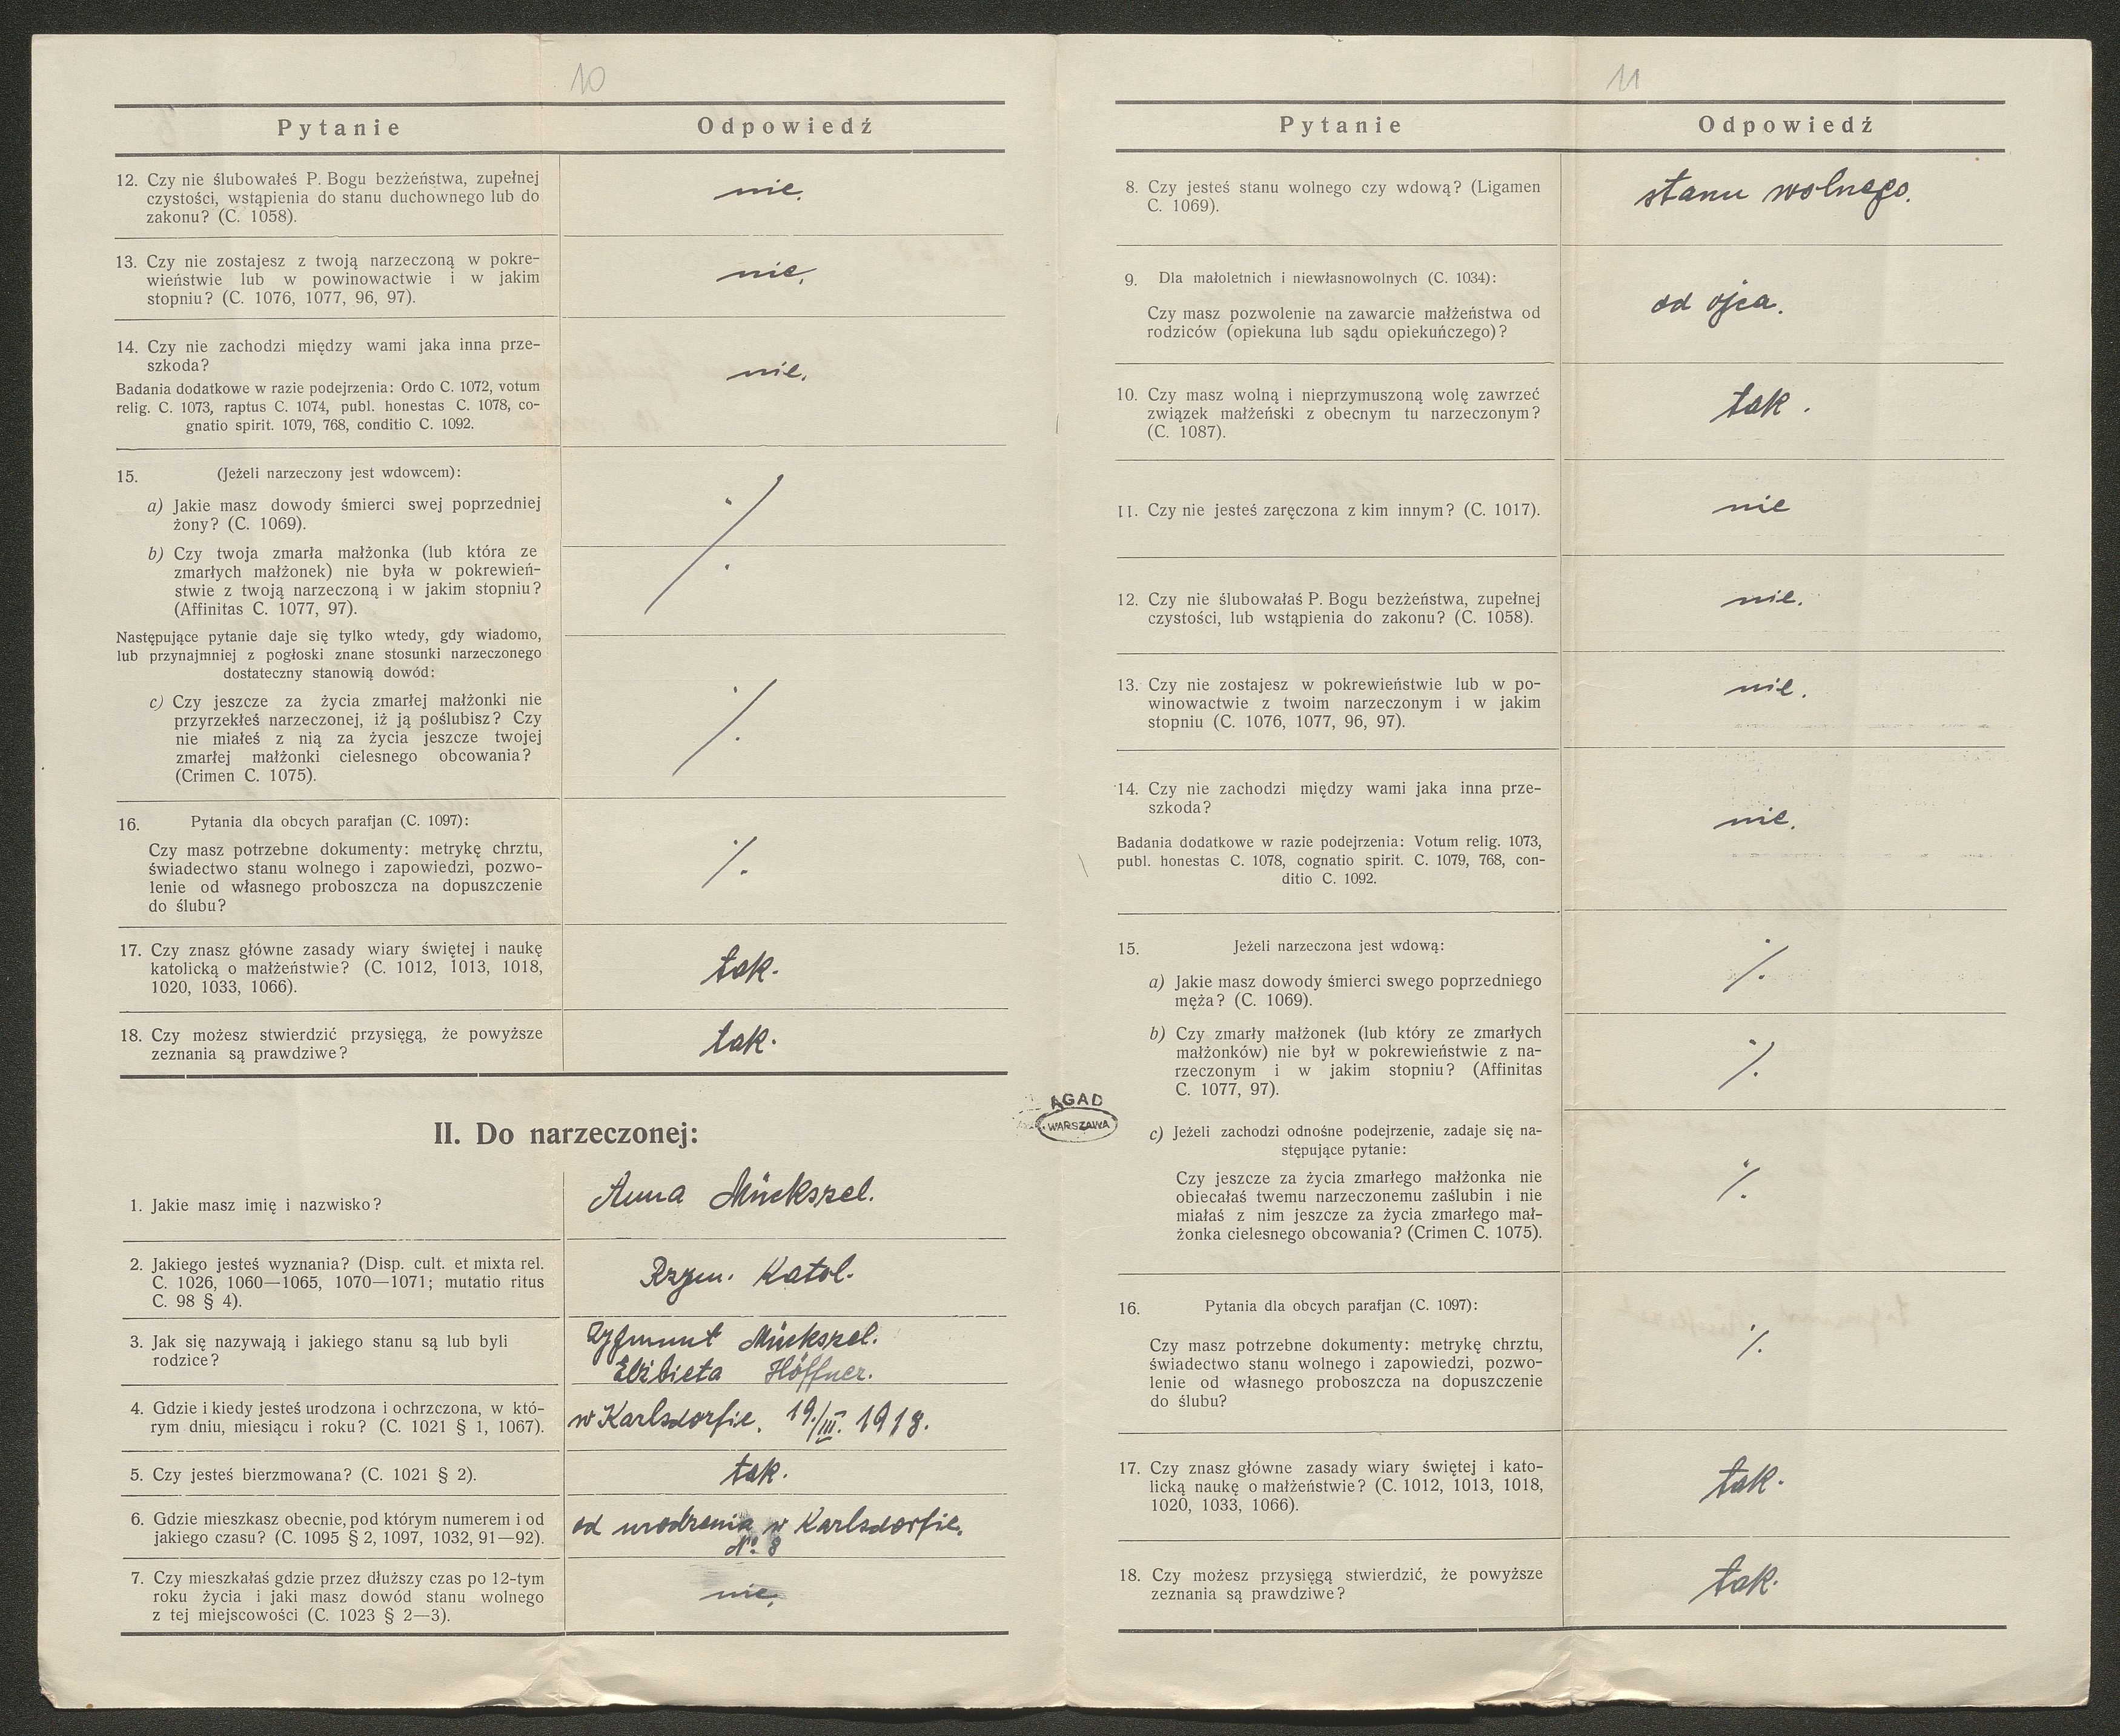 10
Pytanie Odpowiedź
12. Czy nie ślubowałeś P. Bogu bezżeństwa, zupełnej
czystości, wstąpienia do stanu duchownego lub do
zakonu? (C. 1058).
nie.
13. Czy nie zostajesz z twoją narzeczoną w pokre-
wieństwie lub w powinowactwie i w jakim
stopniu? (C. 1076, 1077, 96, 97).
nie.
14. Czy nie zachodzi między wami jaka inna prze-
szkoda?
Badania dodatkowe w razie podejrzenia: Ordo C. 1072, votum
relig. C. 1073, raptus C. 1074, publ. honestas C. 1078, co-
gnatio spirit. 1079, 768, conditio C. 1092.
nie.
15. (Jeżeli narzeczony jest wdowcem):
a) Jakie masz dowody śmierci swej poprzedniej
żony? (C. 1069).
b) Czy twoja zmarła małżonka (lub która ze
zmarłych małżonek) nie była w pokrewień-
stwie z twoją narzeczoną i w jakim stopniu?
(Affinitas C. 1077, 97).
·/.
Następujące pytanie daje się tylko wtedy, gdy wiadomo,
lub przynajmniej z pogłoski znane stosunki narzeczonego
dostateczny stanowią dowód:
c) Czy jeszcze za życia zmarłej małżonki nie
przyrzekłeś narzeczonej, iż ją poślubisz? Czy
nie miałeś z nią za życia jeszcze twojej
zmarłej małżonki cielesnego obcowania?
(Crimen C. 1075).
·/.
16. Pytania dla obcych parafjan (C. 1097):
Czy masz potrzebne dokumenty: metrykę chrztu,
świadectwo stanu wolnego i zapowiedzi, pozwo-
lenie od własnego proboszcza na dopuszczenie
do ślubu?
·/.
17. Czy znasz główne zasady wiary świętej i naukę
katolicką o małżeństwie? (C. 1012, 1013, 1018,
1020, 1033, 1066).
tak.
18. Czy możesz stwierdzić przysięgą, że powyższe
zeznania są prawdziwe?
tak.
II. Do narzeczonej:
1. Jakie masz imię i nazwisko?
Anna Mückszel.
2. Jakiego jesteś wyznania? (Disp. cult. et mixta rel.
C. 1026, 1060—1065, 1070—1071; mutatio ritus
C. 98 § 4).
Rzym. Katol.
3. Jak się nazywają i jakiego stanu są lub byli
rodzice?
Zygmunt Mückszel.
Elżbieta Höffner.
4. Gdzie i kiedy jesteś urodzona i ochrzczona, w któ-
rym dniu, miesiącu i roku? (C. 1021 § 1, 1067).
w Karlsdorfie. 19./III. 1918.
5. Czy jesteś bierzmowana? (C. 1021 § 2).
tak.
6. Gdzie mieszkasz obecnie, pod którym numerem i od
jakiego czasu? (C. 1095 § 2, 1097, 1032, 91—92).
od urodzenia w Karlsdorfie.
No. 8
7. Czy mieszkałaś gdzie przez dłuższy czas po 12-tym
roku życia i jaki masz dowód stanu wolnego
z tej miejscowości (C. 1023 § 2—3).
nie.
AGAD
WARSZAWA
11
Pytanie Odpowiedź
8. Czy jesteś stanu wolnego czy wdową? (Ligamen
C. 1069).
stanu wolnego.
9. Dla małoletnich i niewłasnowolnych (C. 1034):
Czy masz pozwolenie na zawarcie małżeństwa od
rodziców (opiekuna lub sądu opiekuńczego)?
od ojca.
10. Czy masz wolną i nieprzymuszoną wolę zawrzeć
związek małżeński z obecnym tu narzeczonym?
(C. 1087).
tak.
11. Czy nie jesteś zaręczona z kim innym? (C. 1017).
nie
12. Czy nie ślubowałaś P. Bogu bezżeństwa, zupełnej
czystości, lub wstąpienia do zakonu? (C. 1058).
nie.
13. Czy nie zostajesz w pokrewieństwie lub w po-
winowactwie z twoim narzeczonym i w jakim
stopniu (C. 1076, 1077, 96, 97).
nie.
14. Czy nie zachodzi między wami jaka inna prze-
szkoda?
Badania dodatkowe w razie podejrzenia: Votum relig. 1073,
publ. honestas C. 1078, cognatio spirit. C. 1079, 768, con-
ditio C. 1092.
nie.
15. Jeżeli narzeczona jest wdową:
a) Jakie masz dowody śmierci swego poprzedniego
męża? (C. 1069).
·/.
b) Czy zmarły małżonek (lub który ze zmarłych
małżonków) nie był w pokrewieństwie z na-
rzeczonym i w jakim stopniu? (Affinitas
C. 1077, 97).
·/.
c) Jeżeli zachodzi odnośne podejrzenie, zadaje się na-
stępujące pytanie:
Czy jeszcze za życia zmarłego małżonka nie
obiecałaś twemu narzeczonemu zaślubin i nie
miałaś z nim jeszcze za życia zmarłego mał-
żonka cielesnego obcowania? (Crimen C. 1075).
·/.
16. Pytania dla obcych parafjan (C. 1097):
Czy masz potrzebne dokumenty: metrykę chrztu,
świadectwo stanu wolnego i zapowiedzi, pozwo-
lenie od własnego proboszcza na dopuszczenie
do ślubu?
·/.
17. Czy znasz główne zasady wiary świętej i kato-
licką naukę o małżeństwie? (C. 1012, 1013, 1018,
1020, 1033, 1066).
tak.
18. Czy możesz przysięgą stwierdzić, że powyższe
zeznania są prawdziwe?
tak.